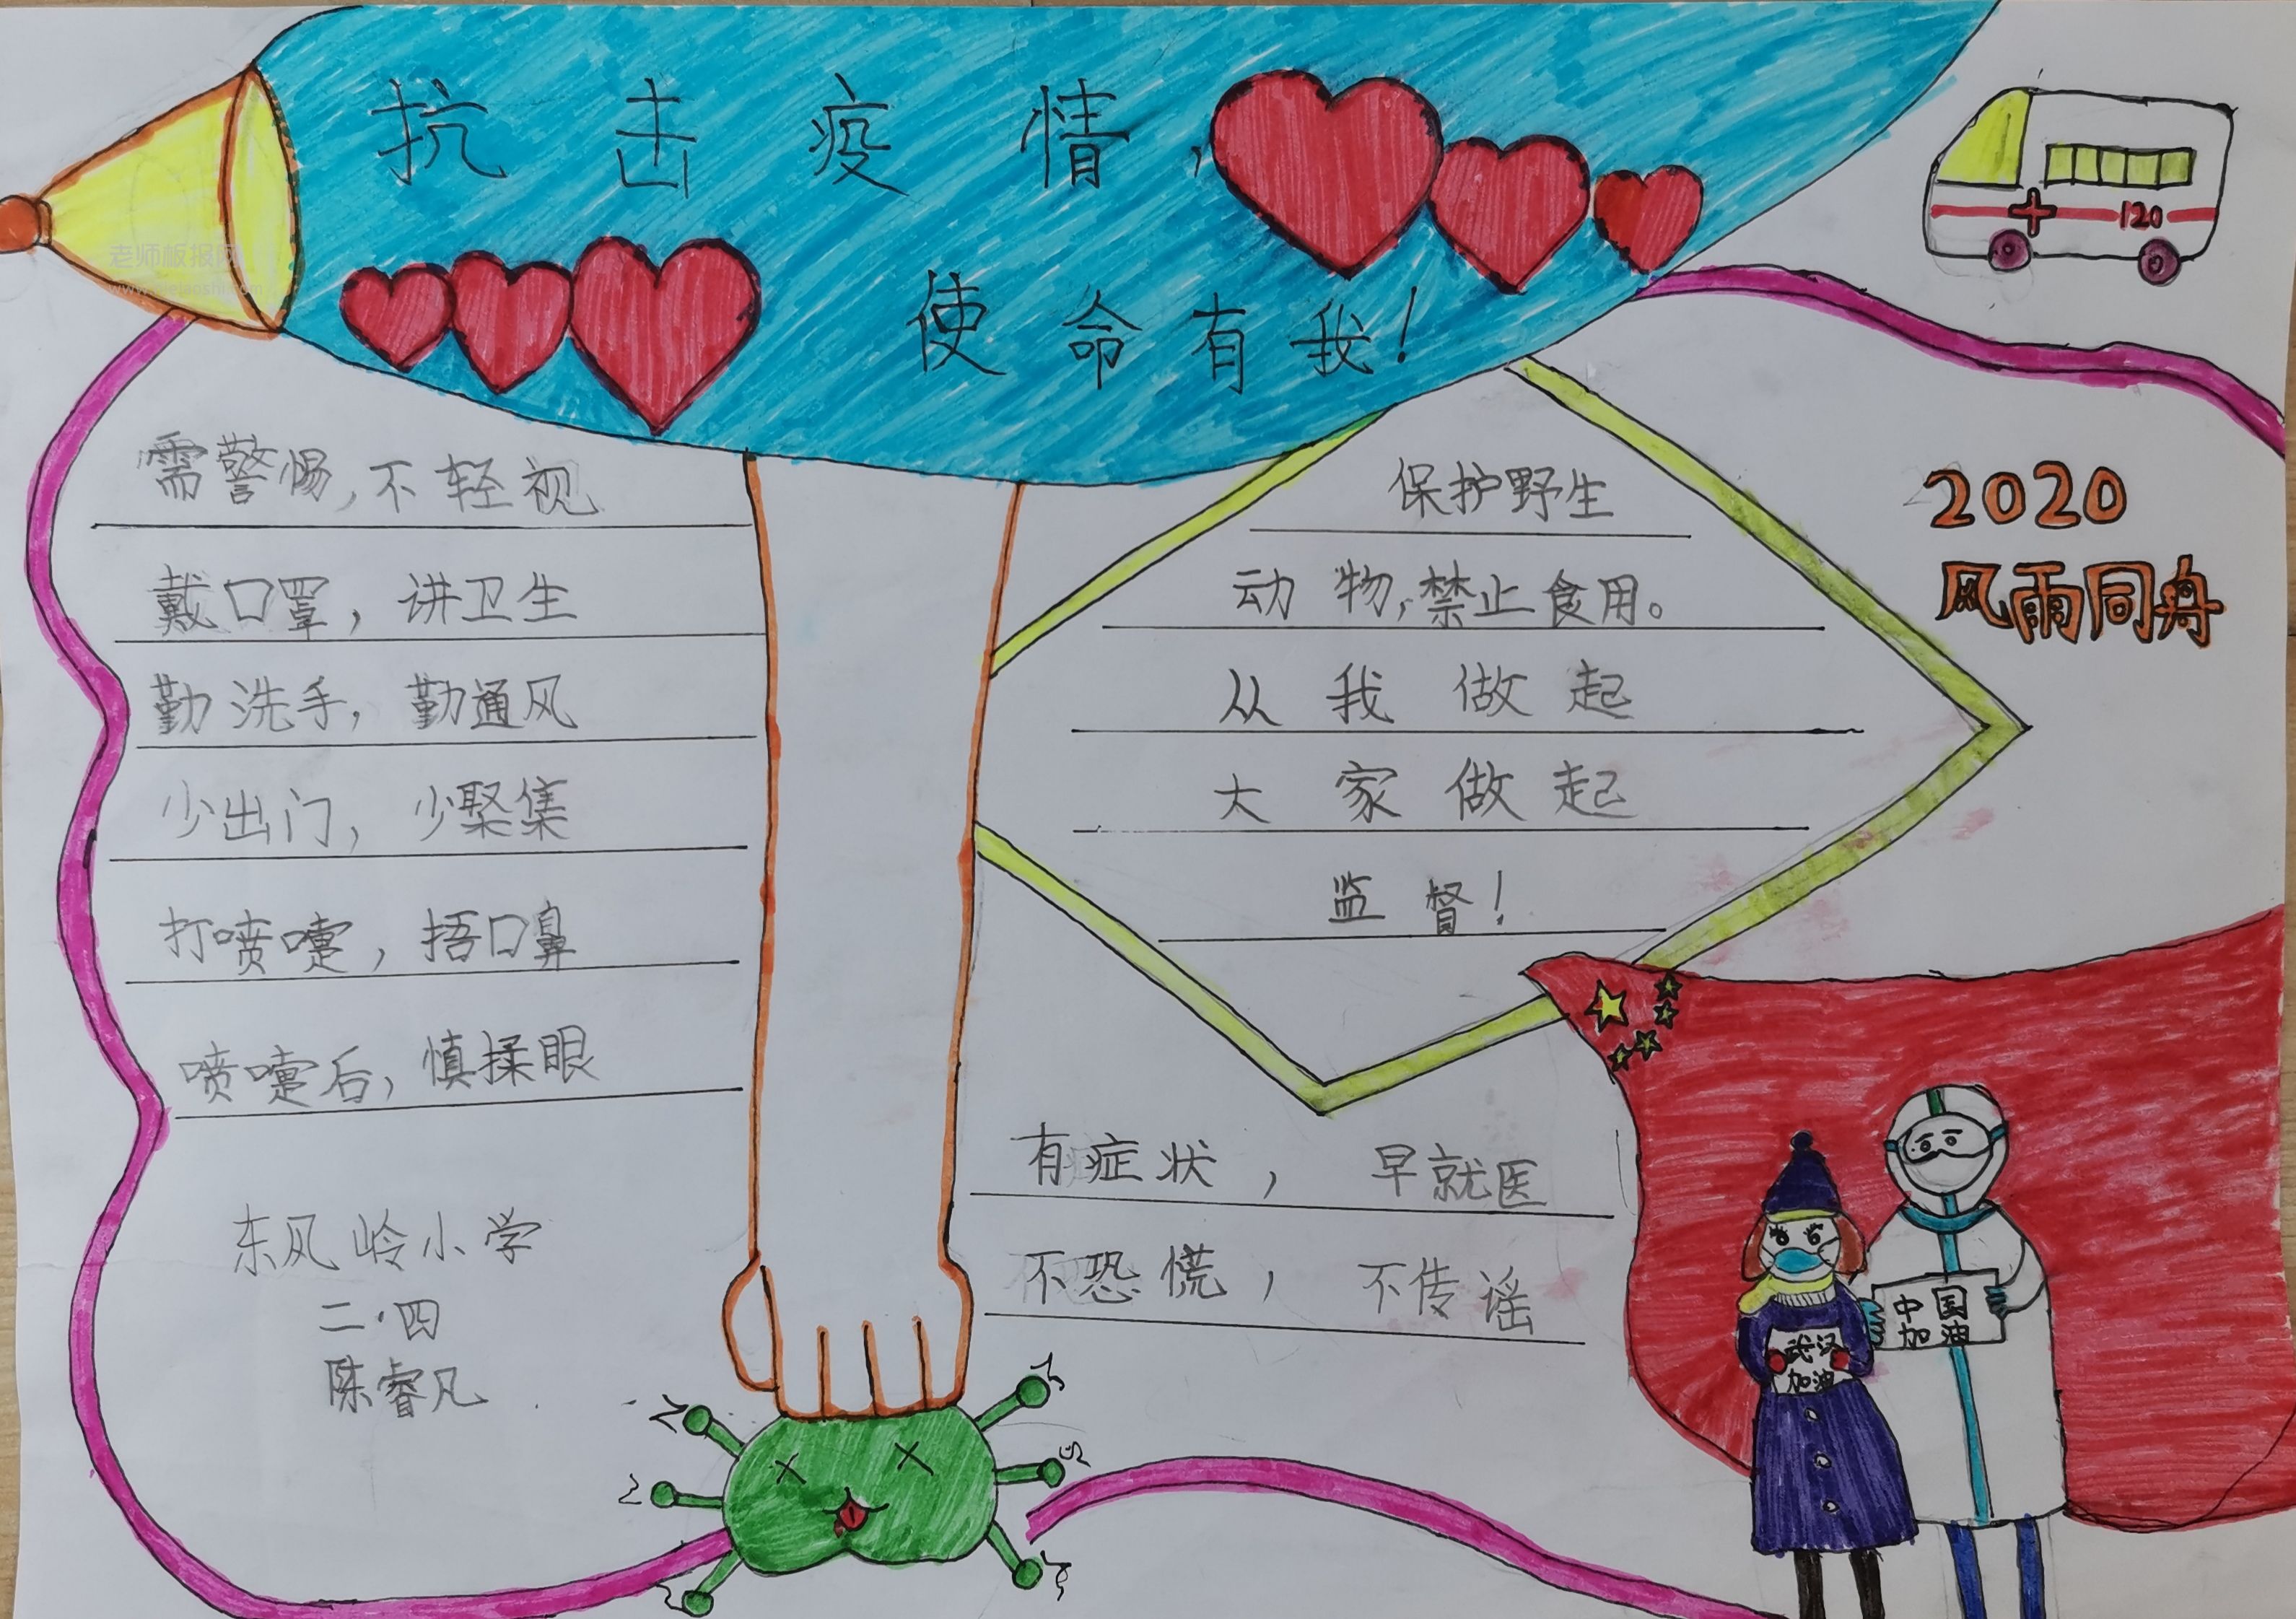 抗击疫情,
使命有我!
120
老师板报网
需警惕,不轻视
戴口罩,讲卫生
勤洗手,勤通风
少出门,少聚集
打喷嚏,捂口鼻
喷嚏后,慎揉眼
东风岭小学
二·四
陈睿凡
保护野生
动物,禁止食用。
从我做起
大家做起
监督!
2020
风雨同舟
有症状,早就医
不恐慌,不传谣
中国
加油
武汉
加油